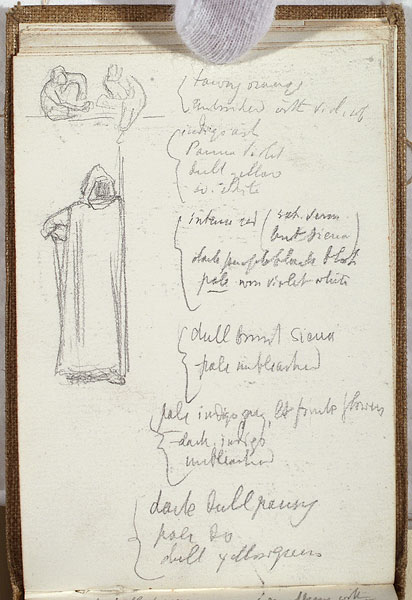 tawny orange
embroidered with violet
indigo ash
Parma violet
dull yellow
or white
intense red (
burnt Siena)
dark purple black
pale warm violet white
dull burnt Siena
pale unbleached
pale indigo gray, flowers
dark indigo
unbleached
dark dull pansy
pale Do
dull yellow green